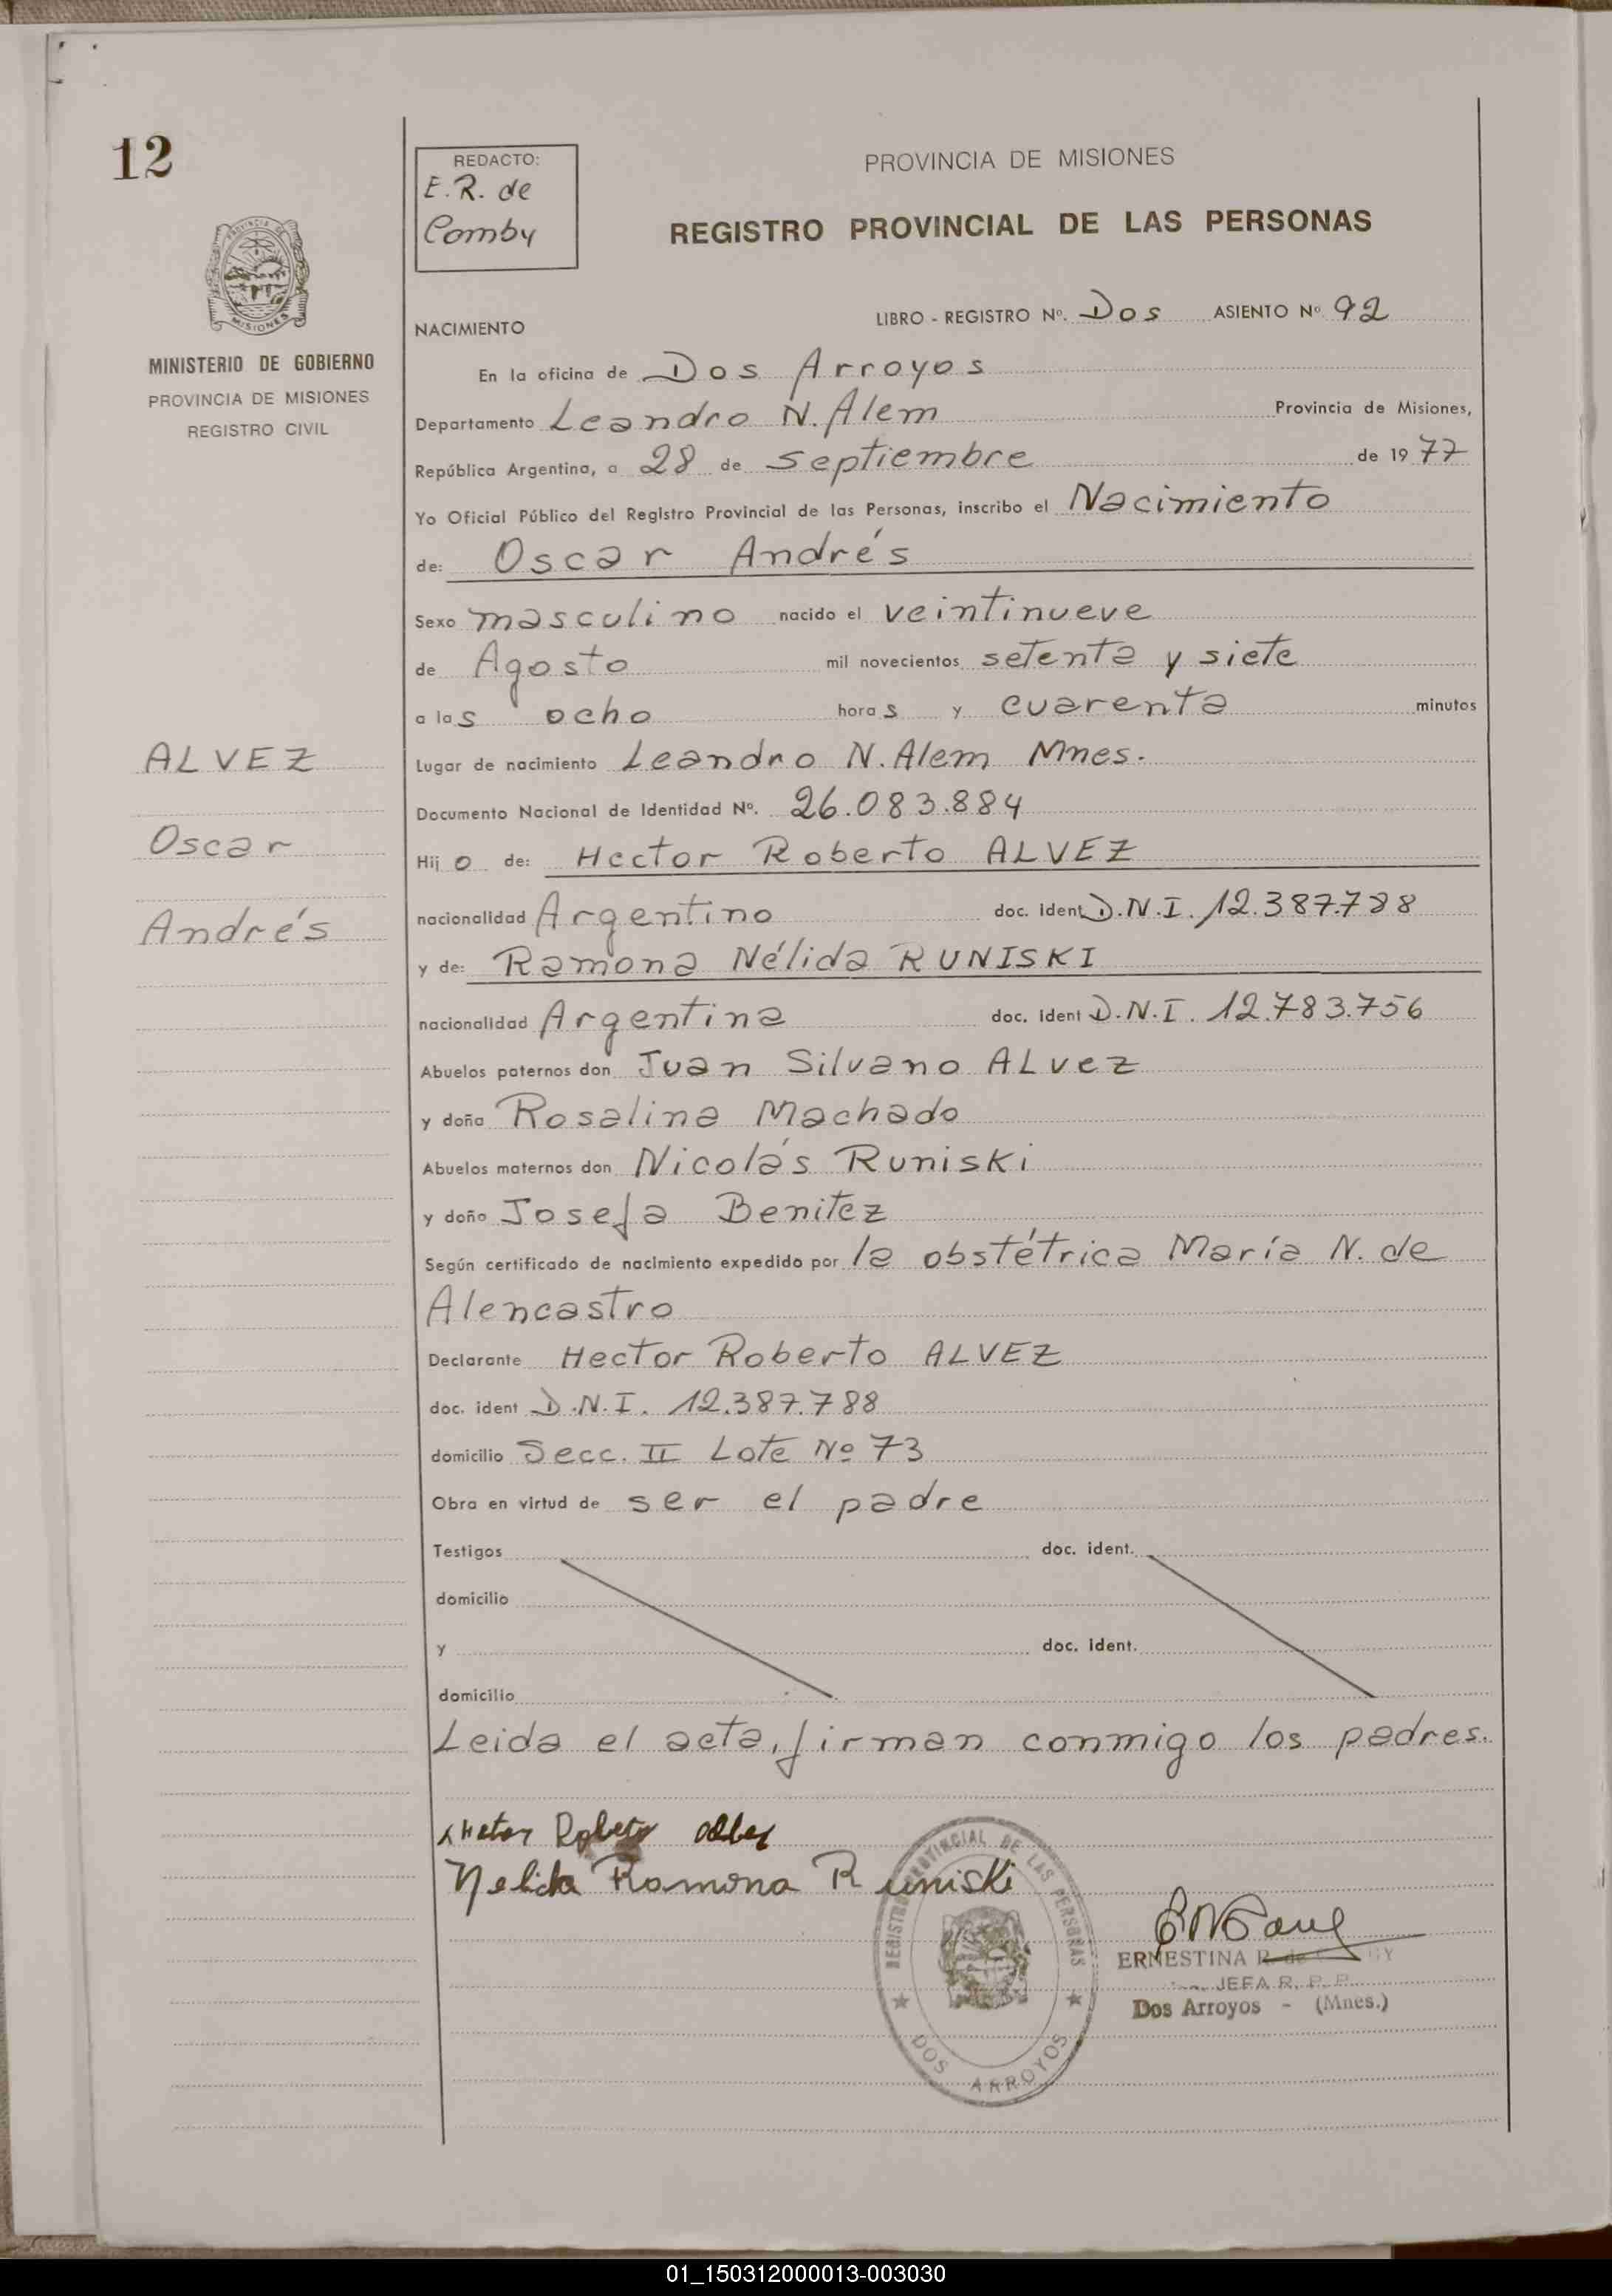 12
REDACTO:
E.R. de
Comby
PROVINCIA DE MISIONES
REGISTRO PROVINCIAL DE LAS PERSONAS
MISIONES
MINISTERIO DE GOBIERNO
PROVINCIA DE MISIONES
REGISTRO CIVIL
NACIMIENTO
LIBRO - REGISTRO Nº. Dos ASIENTO Nº 92
En la oficina de Dos Arroyos
Departamento Leandro N. Alem Provincia de Misiones,
República Argentina, a 28 de septiembre de 19 77
Yo Oficial Público del Registro Provincial de las Personas, inscribo el Nacimiento
de: Oscar Andrés
Sexo masculino nacido el veintinueve
de Agosto mil novecientos setenta y siete
a las ocho horas y cuarenta minutos
ALVEZ
Oscar
Andrés
Lugar de nacimiento Leandro N. Alem Mnes.
Documento Nacional de Identidad Nº. 26.083.884
Hijo de: Hector Roberto ALVEZ
nacionalidad Argentino doc. ident D.N.I. 12.387.788
y de: Ramona Nélida RUNISKI
nacionalidad Argentina doc. ident D.N.I. 12.783.756
Abuelos paternos don Juan Silvano ALvez
y doña Rosalina Machado
Abuelos maternos don Nicolás Runiski
y doña Josefa Benitez
Según certificado de nacimiento expedido por la obstétrica María N. de
Alencastro
Declarante Hector Roberto ALVEZ
doc. ident D.N.I. 12.387.788
domicilio Secc. II Lote Nº 73
Obra en virtud de ser el padre
Testigos doc. ident.
domicilio
y doc. ident.
domicilio
Leida el acta, firman conmigo los padres.
Nelida Ramona Runiski
REGISTRO PROVINCIAL DE LAS PERSONAS
DOS ARROYOS
ERNESTINA R. de
JEFA R. P. P.
Dos Arroyos - (Mnes.)
01_150312000013-003030